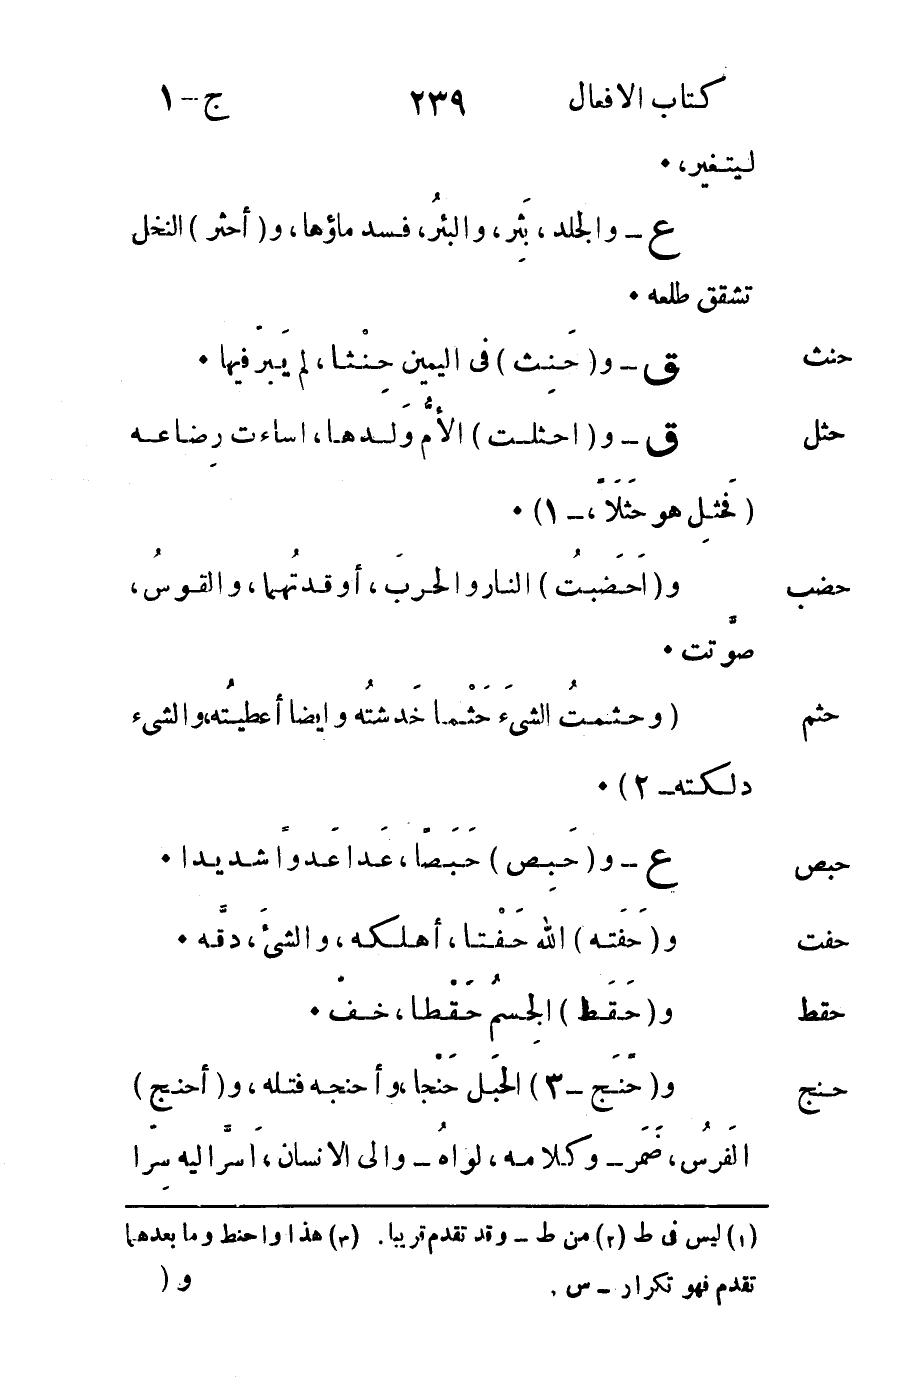 كتاب الافعال ٢٣٩ ج-١
ليتغير، •
ع ـ والجلد، بَثِر، والبئرُ، فسد ماؤها، و( أحثر ) النخل
تشقق طلعه •
حنث ق ـ و( حَنِث ) فى اليمين حِنْثا، لم يَبَرّ فيها •
حثل ق ـ و( احثلت ) الأُمُّ وَلدها، اساءت رِضاعه
( فَحثِل هو حَثَلَاً، ـ ١) •
حضب و( اَحَضَبتُ ) النار والحربَ، أوقدتُهما، والقوسُ،
صوَّتت •
حثم ( وحثمتُ الشىءَ حَثْما خَدشتُه وايضا أعطيتُه، والشىء
دلكته ـ ٢) •
حبص ع ـ و( حَبِص ) حَبَصًا، عَدا عَدواً شديدا •
حفت و( حَفَته ) الله حَفْتا، أهلكه، والشئَ، دقَّه •
حقط و( حَقَط ) الجِسمُ حَقْطا، خفّ •
حنج و( حَنَّج ـ ٣) الحَبَل حَنْجا، وأحنجه فتله، و( أحنج )
الفَرسُ، ضَمَر ـ وكلامه، لواهُ ـ والى الانسان، اَسرَّ اليه سِرّا
(١) ليس فى ط (٢) من ط ـ وقد تقدم قريبا. (٣) هذا واحنط وما بعدهما
تقدم فهو تكرار ـ س. و(